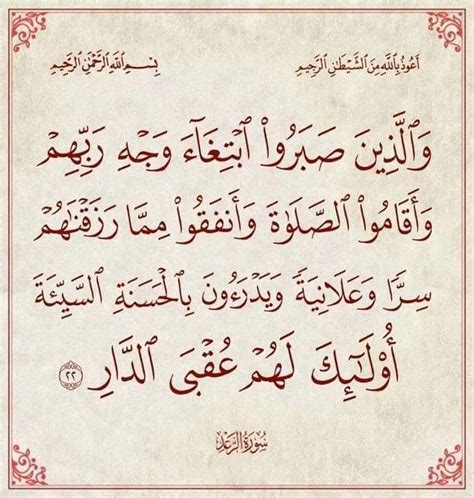 أَعُوذُ بِاللَّهِ مِنَ الشَّيْطَانِ الرَّجِيمِ بِسْمِ اللَّهِ الرَّحْمَٰنِ الرَّحِيمِ
وَٱلَّذِينَ صَبَرُوا۟ ٱبْتِغَآءَ وَجْهِ رَبِّهِمْ
وَأَقَامُوا۟ ٱلصَّلَوٰةَ وَأَنفَقُوا۟ مِمَّا رَزَقْنَٰهُمْ
سِرًّا وَعَلَانِيَةً وَيَدْرَءُونَ بِٱلْحَسَنَةِ ٱلسَّيِّئَةَ
أُو۟لَٰٓئِكَ لَهُمْ عُقْبَى ٱلدَّارِ ٢٢
سُورَةُ الرَّعْدِ